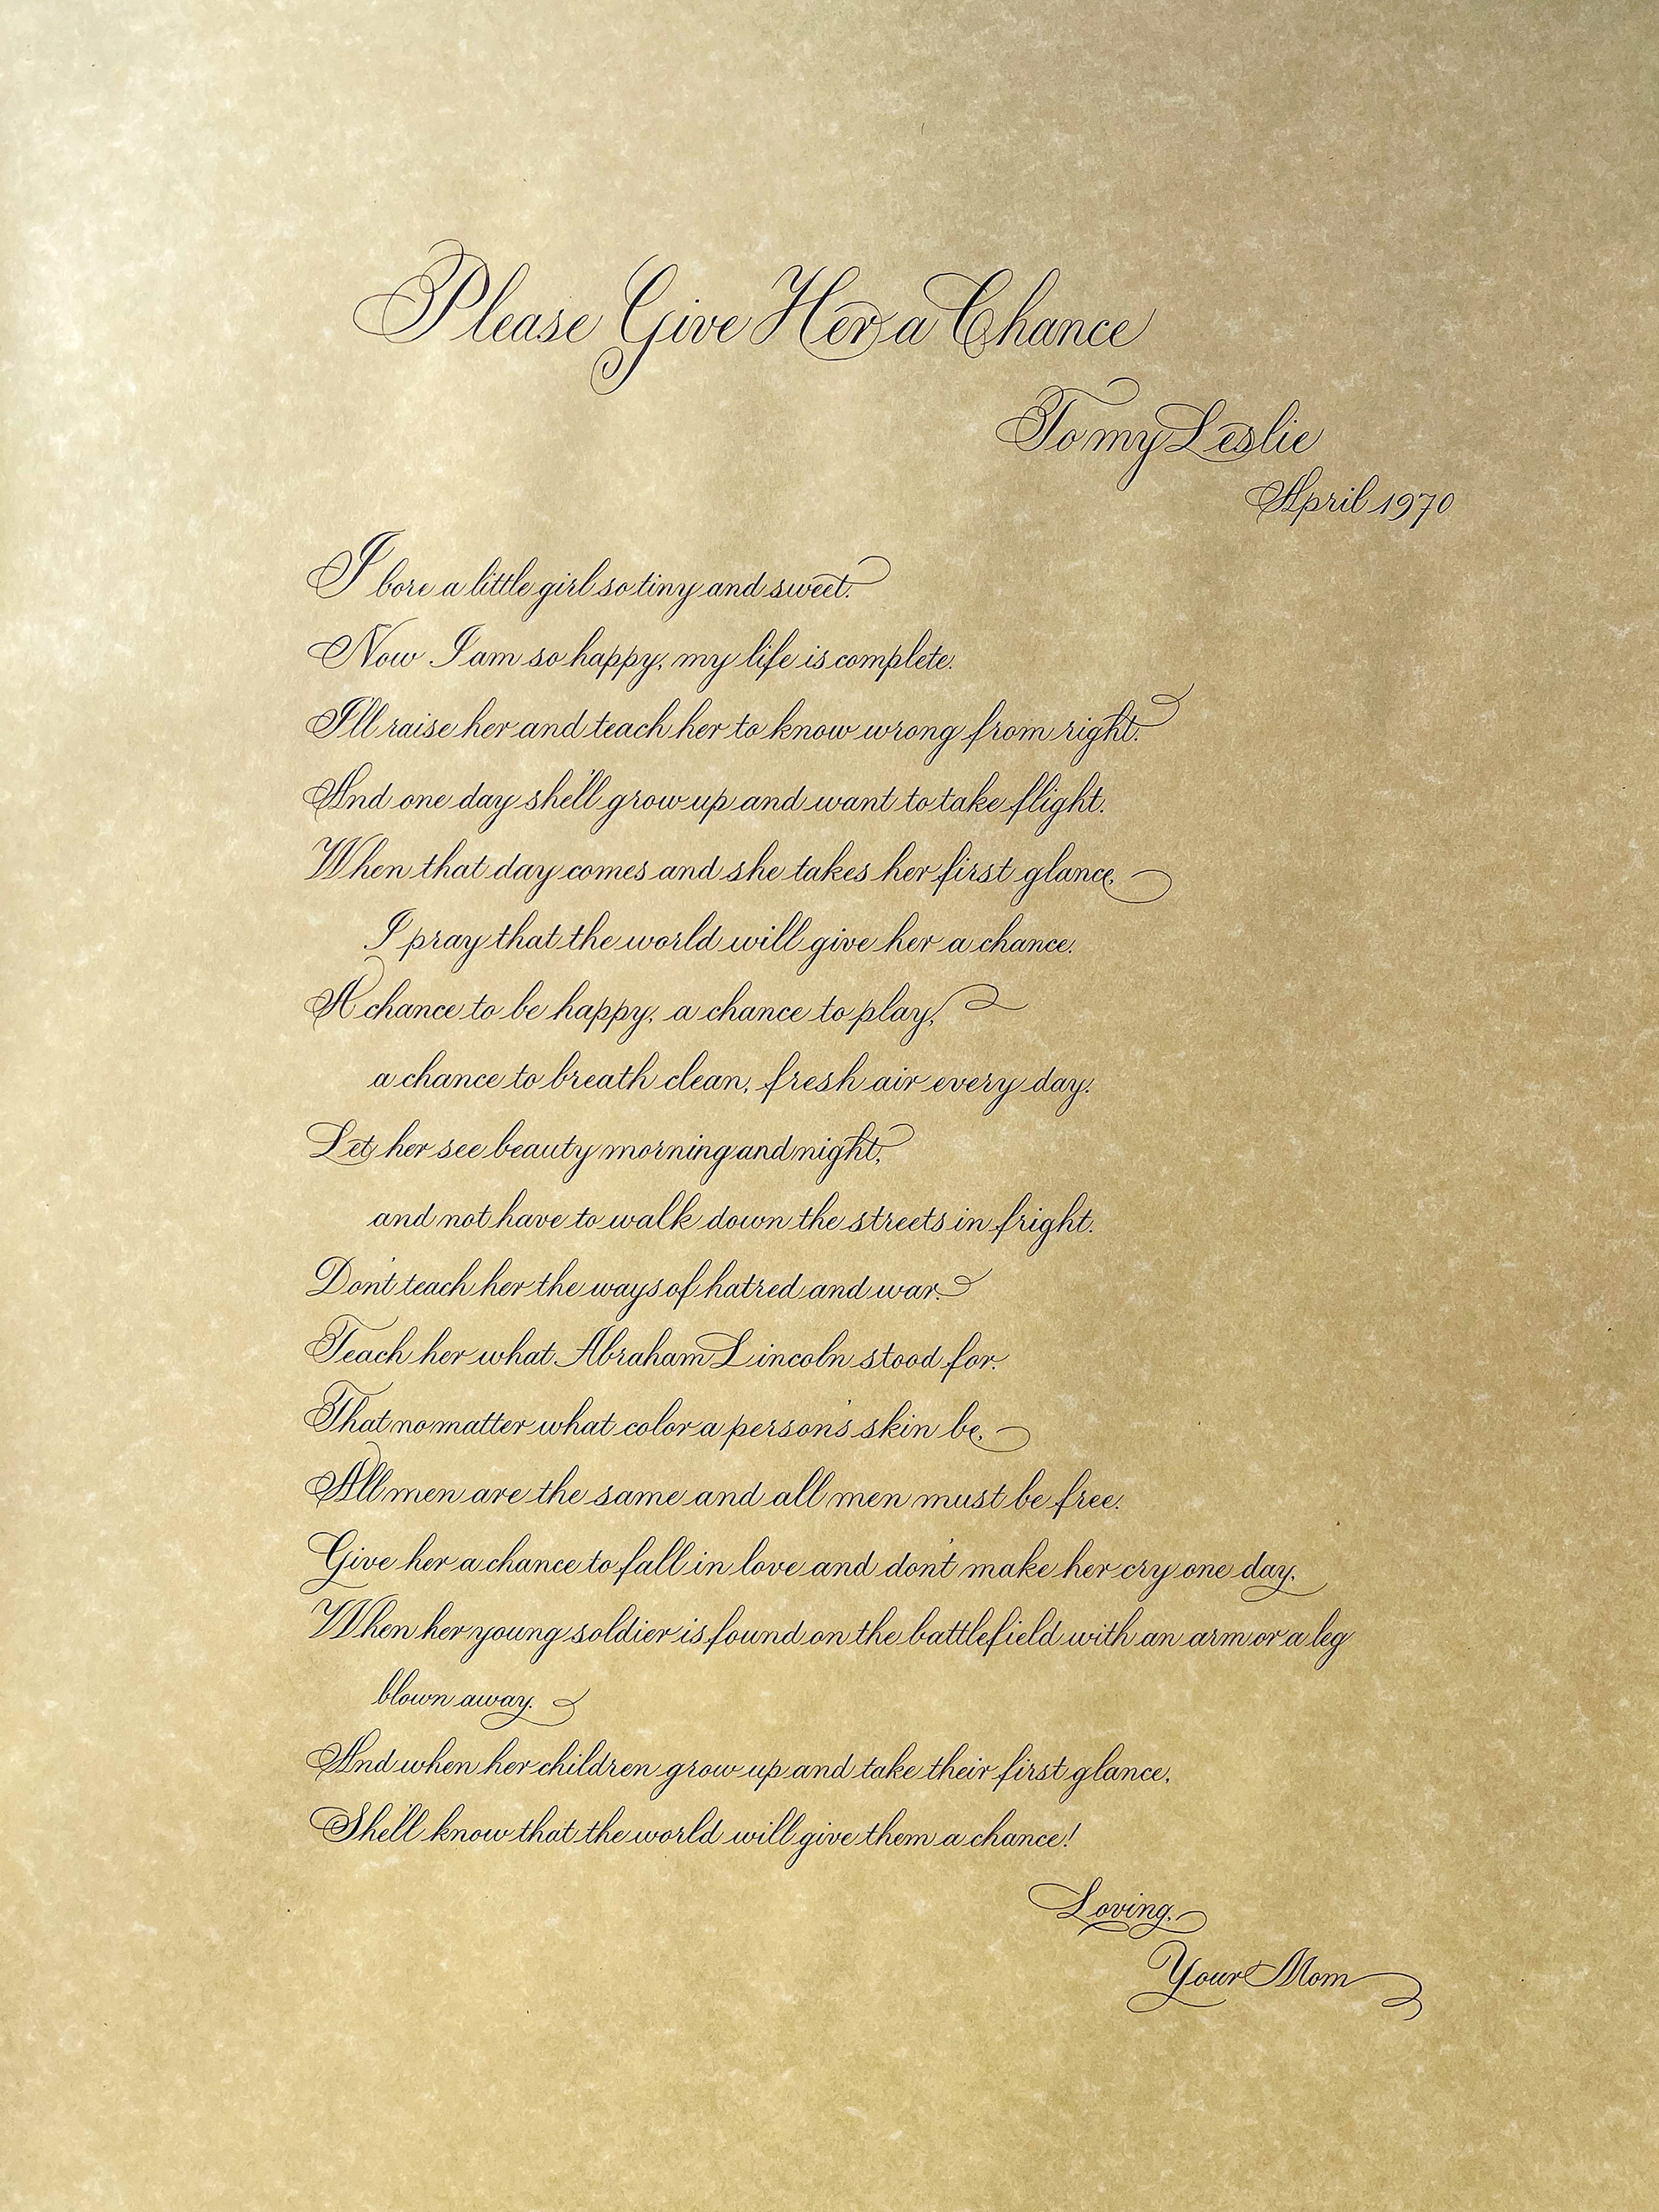 Please Give Her a Chance
To my Leslie
April 1970
I bore a little girl so tiny and sweet.
Now I am so happy, my life is complete.
I'll raise her and teach her to know wrong from right.
And one day she'll grow up and want to take flight.
When that day comes and she takes her first glance,
I pray that the world will give her a chance.
A chance to be happy, a chance to play,
a chance to breath clean, fresh air every day.
Let her see beauty morning and night,
and not have to walk down the streets in fright.
Don't teach her the ways of hatred and war.
Teach her what Abraham Lincoln stood for.
That no matter what color a person's skin be,
All men are the same and all men must be free.
Give her a chance to fall in love and don't make her cry one day,
When her young soldier is found on the battlefield with an arm or a leg
blown away.
And when her children grow up and take their first glance,
She'll know that the world will give them a chance!
Loving,
Your Mom